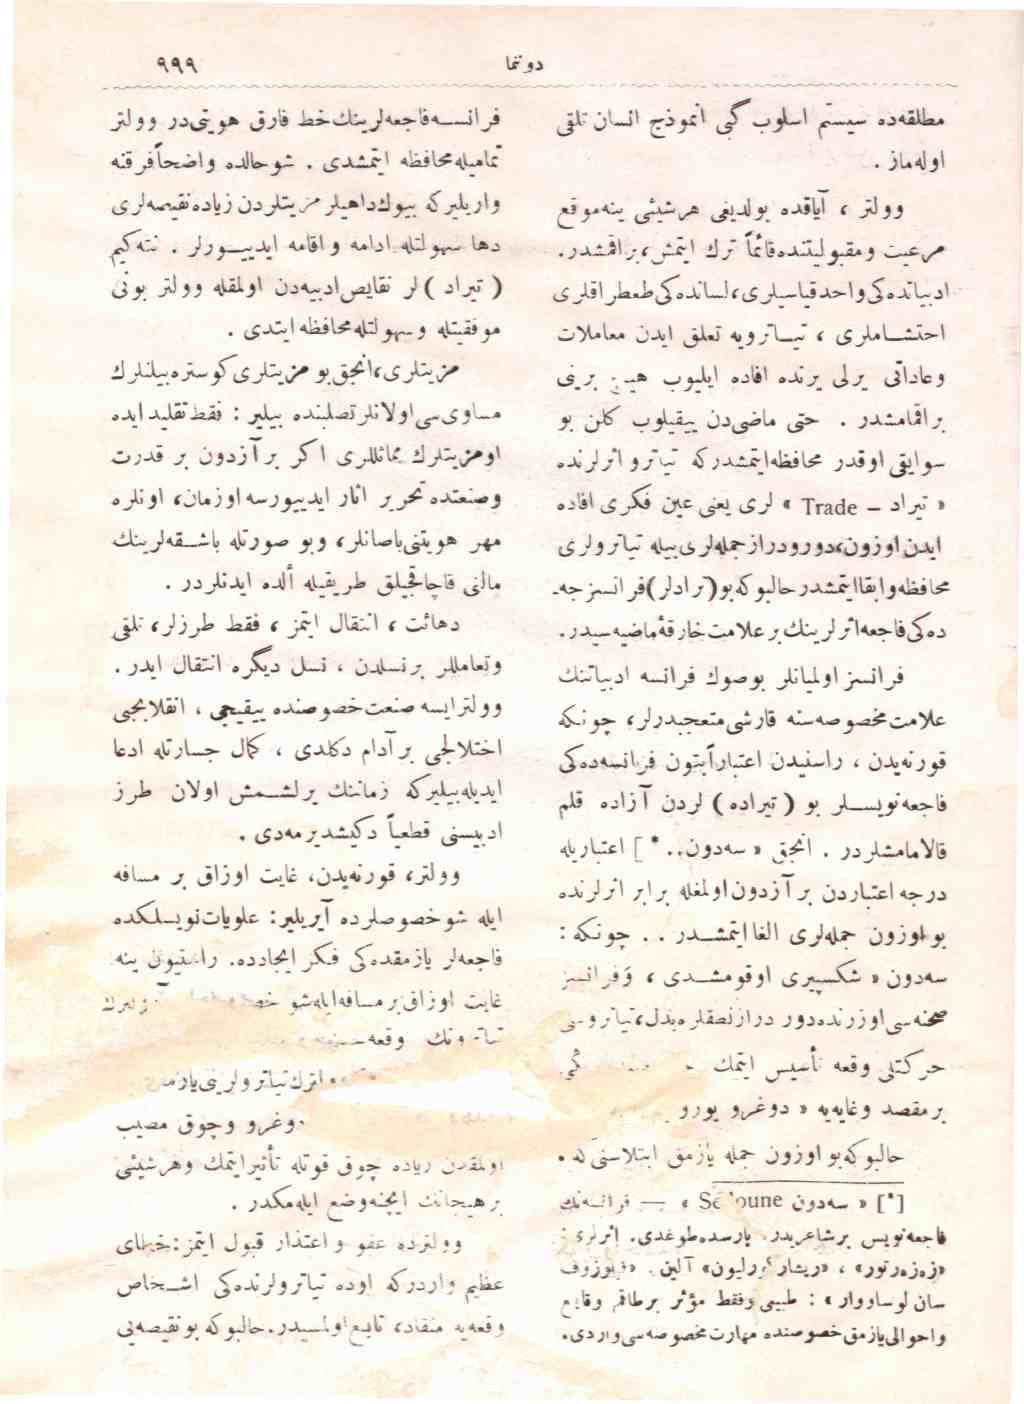 دوتنما
٩٩٩
مطلقه‌ده سیستم اسلوب گبی اتموذج انسان تلقی
اوله‌ماز .
وولتر ، آیاقده بولدیغی هرشیئی ینه‌موقع
مرعیت ومقبولیتنده‌قائماً ترك ایتمش،براقمشدر.
ادبیاتده‌کی‌واحدقیاسیلری،لسانده‌کی‌طعطراقلری
احتشاملری ، تیاترویه تعلق ایدن معاملات
وعاداتی یرلی یرنده افاده ایلیوب هیچ برینی
براقمامشدر . حتی ماضی‌دن ییقیلوب کلن بو
سوایقی اوقدر محافظه‌ایتمشدرکه تیاترو اثرلرنده
« تیراد – Trade » لری یعنی عین فکری افاده
ایدن‌اوزون،دورودرازجمله‌لری‌بیله تیاترولری
محافظه‌وابقاایتمشدر حالبوکه‌بو(ترادلر)فرانسزجه‌ـ
ده‌کی‌فاجعه‌اثرلرینك‌برعلامت‌خارقهٔ‌ماضیه‌سیدر.
فرانسز اولمیانلر بوصوك فرانسه ادبیاتنك
علامت‌مخصوصه‌سنه قارشی‌متعجبدرلر، چونکه
قورنه‌یدن ، راسنیدن اعتباراً‌بتون فرانسه‌ده‌کی
فاجعه‌نویسلر بو ( تیراده ) لردن آزاده قلم
قالامامشلردر . انجق « سه‌دون.. * ] اعتباریله
درجه اعتباردن بر آزدون‌اولمغله برابر اثرلرنده
بواوزون جمله‌لری الغا ایتمشدر .. چونکه :
سه‌دون « شکسپیری اوقومشدی ، وفرانسز
صحنه‌سی‌اوزرنده‌دور درازنطقلره‌بدل،تیاتروسی
حرکتلی وقعه تأسیس ایتمك گبی
برمقصد وغایه‌یه « دوغرو یورو
حالبوکه‌بواوزون جمله یازمق ابتلاسنی‌که .
[*] « سه‌دون Sedoune » — فرانسه‌نك
فاجعه‌نویس برشاعریدر. پارسده‌طوغدی. اثرلری :
«زه‌زه‌رتور» ، «ریشار کورلیون» آلین. «فیلوزوف
سان لوساووار» : طبیعی‌وفقط مؤثر برطاقم وقایع
واحوالی‌یازمق‌خصوصنده مهارت‌مخصوصه‌سی‌واردی.
فرانسه‌فاجعه‌لرینك‌خط فارق هویتی‌در وولتر
تمامیله‌محافظه ایتمشدی . شوحالده واضحاً‌فرقنه
واریلیرکه بیوك‌داهیلر مزیتلردن زیاده‌نقیصه‌لری
دها سهولتله ادامه و اقامه ایدییورلر . نته‌کیم
( تیراد ) لر نقایص‌ادبیه‌دن اولمقله وولتر بونی
موفقیتله وسهولتله‌محافظه ایتدی .
مزیتلری،انجق‌بو مزیتلری‌کوستره‌بیلنلرك
مساوی‌سی‌اولانلرتصلبنده بیلیر : فقط‌تقلید ایده
اومزیتلرك مماثللری اکر برآزدون بر قدرت
وصنعتده تحریر اثار ایدییورسه اوزمان، اونلره
مهر هویتنی‌باصانلر، وبو صورتله باشقه‌لرینك
مالنی قاچاقجیلق طریقیله ألده ایدنلردر .
دهائت ، انتقال ایتمز ، فقط طرزلر، تلقی
وتعامللر برنسلدن ، نسل دیگره انتقال ایدر .
وولترایسه صنعت‌خصوصنده ییقیجی ، انقلابجی
اختلالجی برآدام دکلدی ، کمال جسارتله ادعا
ایدیله‌بیلیرکه زماننك یرلشمش اولان طرز
ادبیسنی قطعیاً دکیشدیرمه‌دی .
وولتر، قورنه‌یدن، غایت اوزاق بر مسافه
ایله شوخصوصلرده آیریلیر: علویات‌نویسلکده
فاجعه‌لر یازمقده‌کی فکر ایجادده. راسنیدن ینه
غایت اوزاق‌برمسافه‌ایله‌شو
وقعه
تیاترولرینی‌یازم
دوغرو وچوق مصیب
اولمقدن زیاده چوق قوتله تأثیرایتمك وهرشیئی
برهیجانك ایچنه‌وضع ایله‌مکدر .
وولترده عفو واعتذار قبول ایتمز:خطای
عظیم واردرکه اوده تیاترولرنده‌کی اشخاص
وقعه‌یه منقاد، تابع‌اولمسیدر.حالبوکه بونقیصه‌یی